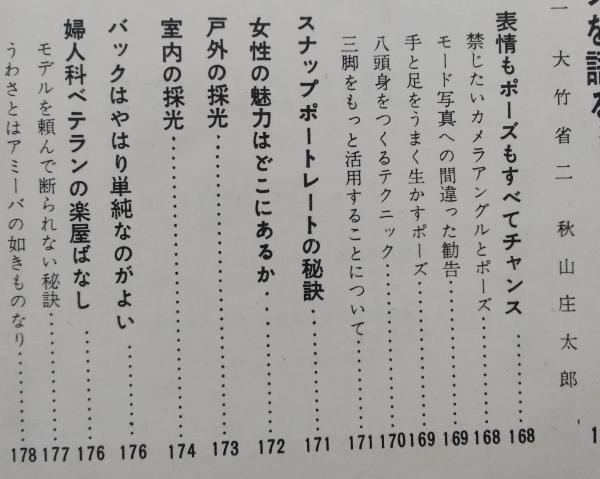 を語る
一 大竹省二 秋山庄太郎
表情もポーズもすべてチャンス………168
禁じたいカメラアングルとポーズ………168
モード写真への間違った勧告………169
手と足をうまく生かすポーズ………169
八頭身をつくるテクニック………170
三脚をもっと活用することについて………171
スナップポートレートの秘訣………171
女性の魅力はどこにあるか………172
戸外の採光………173
室内の採光………174
バックはやはり単純なのがよい………176
婦人科ベテランの楽屋ばなし………176
モデルを頼んで断られない秘訣………177
うわさとはアミーバの如きものなり………178